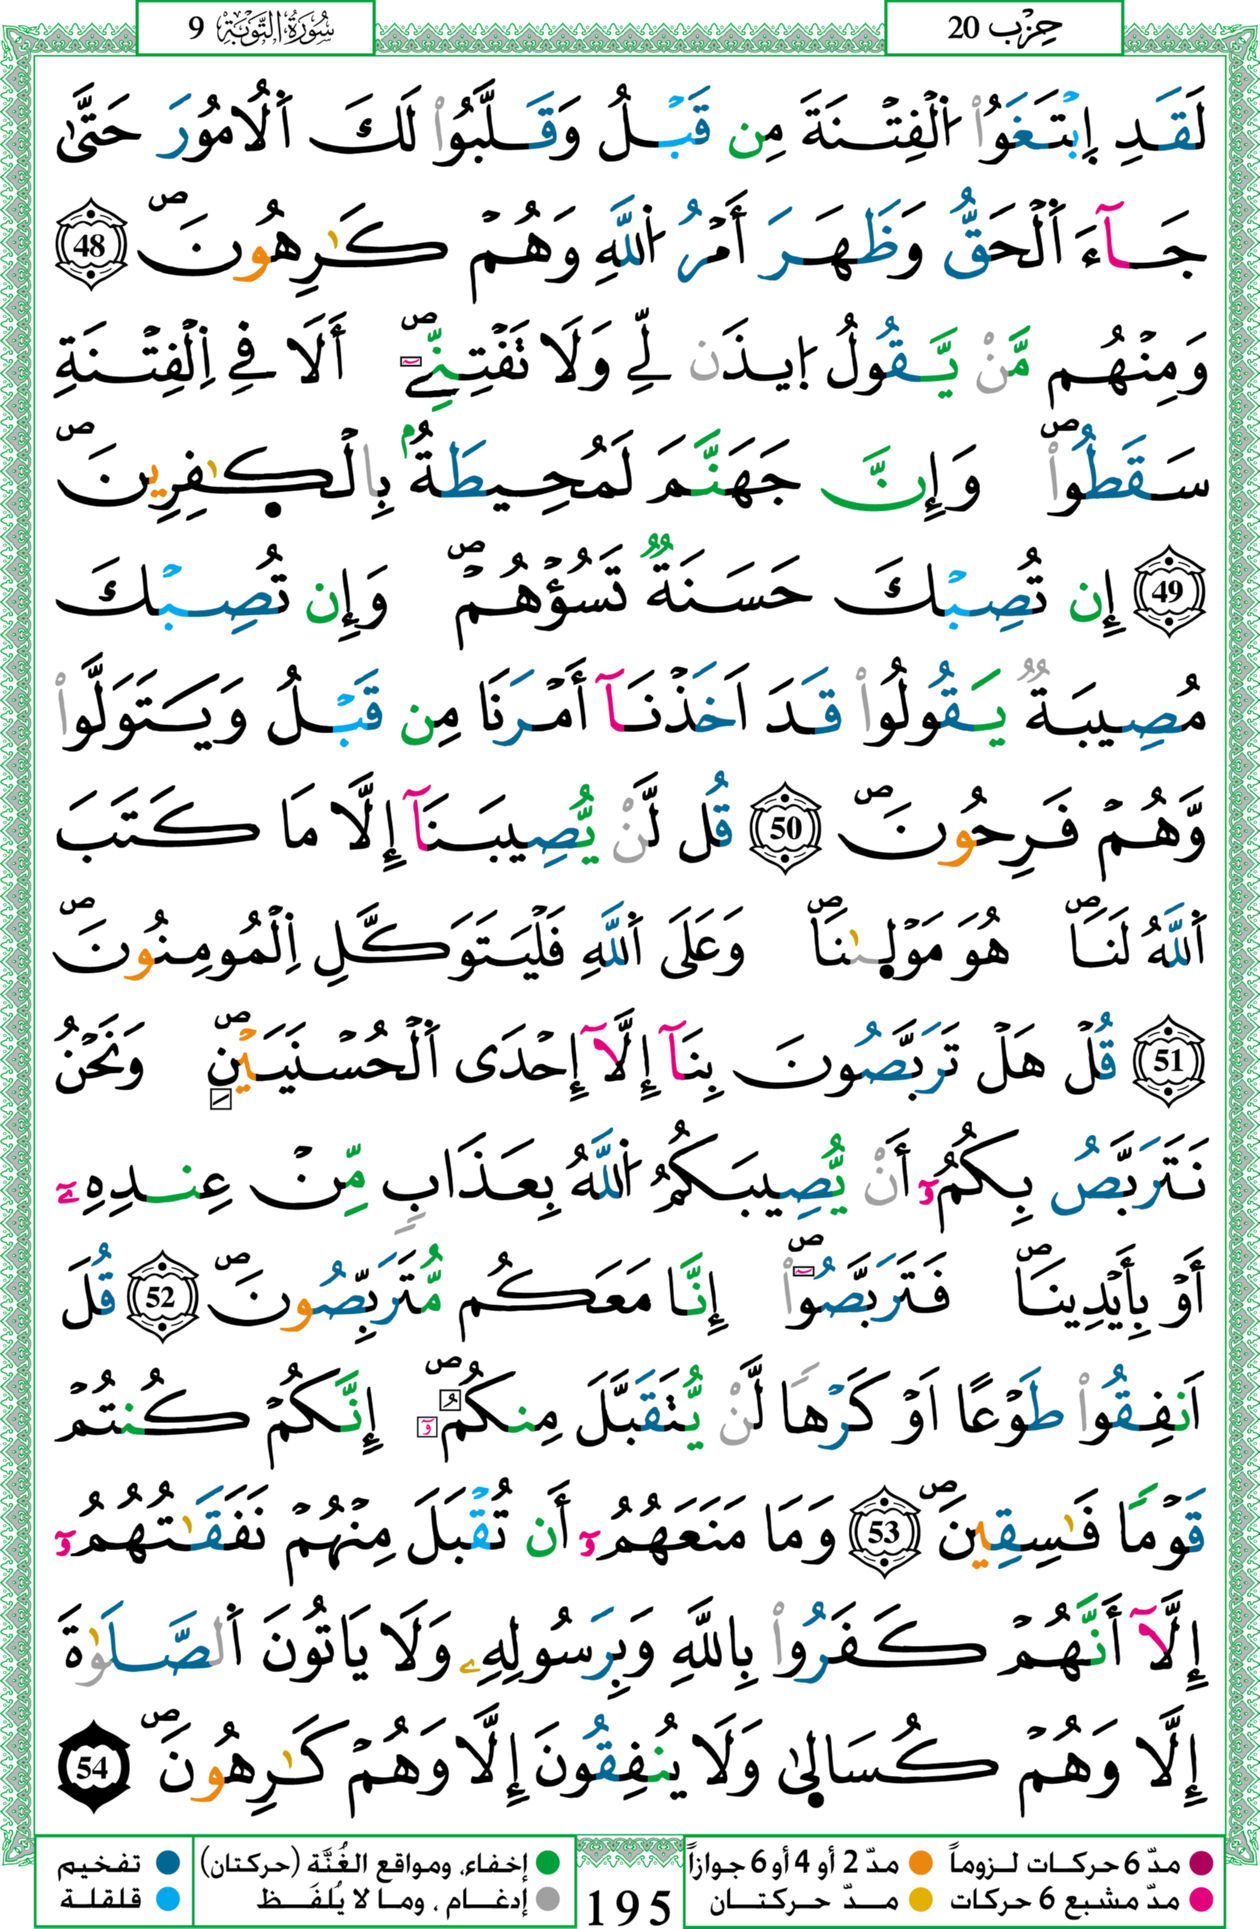 حِزْب 20
سُورَةُ التَّوْبَة 9
لَقَدِ اِ۪بْتَغَوُاْ اُ۬لْفِتْنَةَ مِن قَبْلُ وَقَلَّبُواْ لَكَ اَ۬لُامُورَ حَتَّىٰ
جَآءَ اَ۬لْحَقُّ وَظَهَرَ أَمْرُ اُ۬للَّهِ وَهُمْ كَٰرِهُونَۖ 48
وَمِنْهُم مَّنْ يَّقُولُ اُ۪يذَن لِّے وَلَا تَفْتِنِّےۖ أَلَا فِے اِ۬لْفِتْنَةِ
سَقَطُواْۖ وَإِنَّ جَهَنَّمَ لَمُحِيطَةُۢ بِالْكٰ۪فِرِينَۖ
49 إِن تُصِبْكَ حَسَنَةٞ تَسُؤْهُمْۖ وَإِن تُصِبْكَ
مُصِيبَةٞ يَقُولُواْ قَدَ اَخَذْنَآ أَمْرَنَا مِن قَبْلُ وَيَتَوَلَّواْ
وَّهُمْ فَرِحُونَۖ 50 قُل لَّنْ يُّصِيبَنَآ إِلَّا مَا كَتَبَ
اَ۬للَّهُ لَنَاۖ هُوَ مَوْل۪ىٰنَاۖ وَعَلَى اَ۬للَّهِ فَلْيَتَوَكَّلِ اِ۬لْمُومِنُونَۖ
51 قُلْ هَلْ تَرَبَّصُونَ بِنَآ إِلَّآ إِحْدَى اَ۬لْحُسْنَيَيْنِۖ وَنَحْنُ
نَتَرَبَّصُ بِكُمُۥٓ أَنْ يُّصِيبَكُمُ اُ۬للَّهُ بِعَذَابٖ مِّنْ عِندِهِۦٓ
أَوْ بِأَيْدِينَاۖ فَتَرَبَّصُوٓاْۖ إِنَّا مَعَكُم مُّتَرَبِّصُونَۖ 52 قُلَ
اَنفِقُواْ طَوْعًا اَوْ كَرْهاٗ لَّنْ يُّتَقَبَّلَ مِنكُمُۥٓۖ إِنَّكُمْ كُنتُمْ
قَوْماٗ فَٰسِقِينَۖ 53 وَمَا مَنَعَهُمُۥٓ أَن تُقْبَلَ مِنْهُمْ نَفَقَٰتُهُمُۥٓ
إِلَّآ أَنَّهُمْ كَفَرُواْ بِاللَّهِ وَبِرَسُولِهِۦ وَلَا يَاتُونَ اَ۬لصَّلَوٰةَ
إِلَّا وَهُمْ كُسَال۪ىٰ وَلَا يُنفِقُونَ إِلَّا وَهُمْ كَٰرِهُونَۖ 54
مدّ 6 حركات لزوماً مدّ 2 أو 4 أو 6 جوازاً إخفاء، ومواقع الغُنَّة (حركتان) تفخيم
مدّ مشبع 6 حركات مدّ حركتان إدغام ، وما لا يُلفَظ قلقلة
195